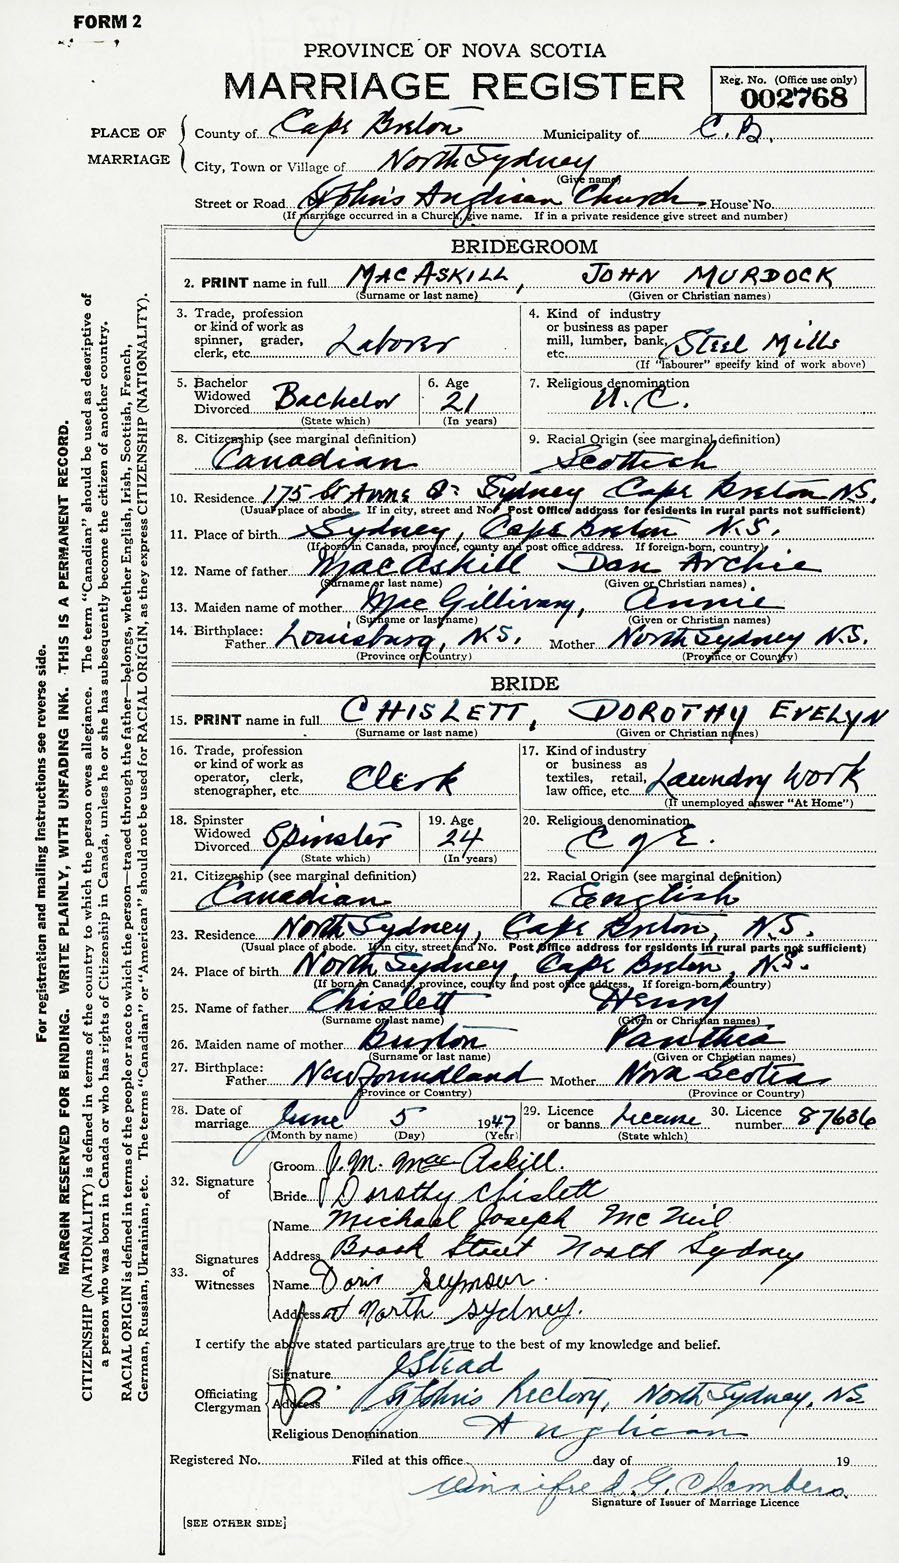 FORM 2
PROVINCE OF NOVA SCOTIA
MARRIAGE REGISTER
Reg. No. (Office use only)
002768
PLACE OF MARRIAGE
County of Cape Breton Municipality of C.B.
City, Town or Village of North Sydney
(Give name)
Street or Road St John's Anglican Church House No.
(If marriage occurred in a Church, give name. If in a private residence give street and number)
BRIDEGROOM
2. PRINT name in full MACASKILL, JOHN MURDOCK
(Surname or last name) (Given or Christian names)
3. Trade, profession or kind of work as spinner, grader, clerk, etc. Laborer
4. Kind of industry or business as paper mill, lumber, bank, etc. Steel Mills
(If "labourer" specify kind of work above)
5. Bachelor Widowed Divorced Bachelor
(State which)
6. Age 21
(In years)
7. Religious denomination U.C.
8. Citizenship (see marginal definition) Canadian
9. Racial Origin (see marginal definition) Scottish
10. Residence 175 St Anne St Sydney Cape Breton N.S.
(Usual place of abode. If in city, street and No. Post Office address for residents in rural parts not sufficient)
11. Place of birth Sydney, Cape Breton N.S.
(If born in Canada, province, county and post office address. If foreign-born, country)
12. Name of father MacAskill Dan Archie
(Surname or last name) (Given or Christian names)
13. Maiden name of mother MacGillivary, Annie
(Surname or last name) (Given or Christian names)
14. Birthplace: Father Louisburg, N.S. Mother North Sydney N.S.
(Province or Country) (Province or Country)
BRIDE
15. PRINT name in full CHISLETT, DOROTHY EVELYN
(Surname or last name) (Given or Christian names)
16. Trade, profession or kind of work as operator, clerk, stenographer, etc Clerk
17. Kind of industry or business as textiles, retail, law office, etc. Laundry Work
(If unemployed answer "At Home")
18. Spinster Widowed Divorced Spinster
(State which)
19. Age 24
(In years)
20. Religious denomination C of E.
21. Citizenship (see marginal definition) Canadian
22. Racial Origin (see marginal definition) English
23. Residence North Sydney, Cape Breton, N.S.
(Usual place of abode. If in city, street and No. Post Office address for residents in rural parts not sufficient)
24. Place of birth North Sydney, Cape Breton, N.S.
(If born in Canada, province, county and post office address. If foreign-born, country)
25. Name of father Chislett Henry
(Surname or last name) (Given or Christian names)
26. Maiden name of mother Burton Panthea
(Surname or last name) (Given or Christian names)
27. Birthplace: Father Newfoundland Mother Nova Scotia
(Province or Country) (Province or Country)
28. Date of marriage June 5 1947
(Month by name) (Day) (Year)
29. Licence or banns License
(State which)
30. Licence number 87636
32. Signature of
Groom J. M. MacAskill.
Bride Dorothy Chislett
33. Signatures of Witnesses
Name Michael Joseph McNeil
Address Brook Street North Sydney
Name Doris Seymour.
Address North Sydney.
I certify the above stated particulars are true to the best of my knowledge and belief.
Officiating Clergyman
Signature J Stead
Address St John's Rectory, North Sydney, N.S.
Religious Denomination Anglican
Registered No. Filed at this office day of 19
Winnifred G. Chambers.
Signature of Issuer of Marriage Licence
[SEE OTHER SIDE]
For registration and mailing instructions see reverse side.
MARGIN RESERVED FOR BINDING. WRITE PLAINLY, WITH UNFADING INK. THIS IS A PERMANENT RECORD.
CITIZENSHIP (NATIONALITY) is defined in terms of the country to which the person owes allegiance. The term "Canadian" should be used as descriptive of
a person who was born in Canada or who has rights of Citizenship in Canada, unless he or she has subsequently become the citizen of another country.
RACIAL ORIGIN is defined in terms of the people or race to which the person—traced through the father—belongs, whether English, Irish, Scottish, French,
German, Russian, Ukrainian, etc. The terms "Canadian" or "American" should not be used for RACIAL ORIGIN, as they express CITIZENSHIP (NATIONALITY).